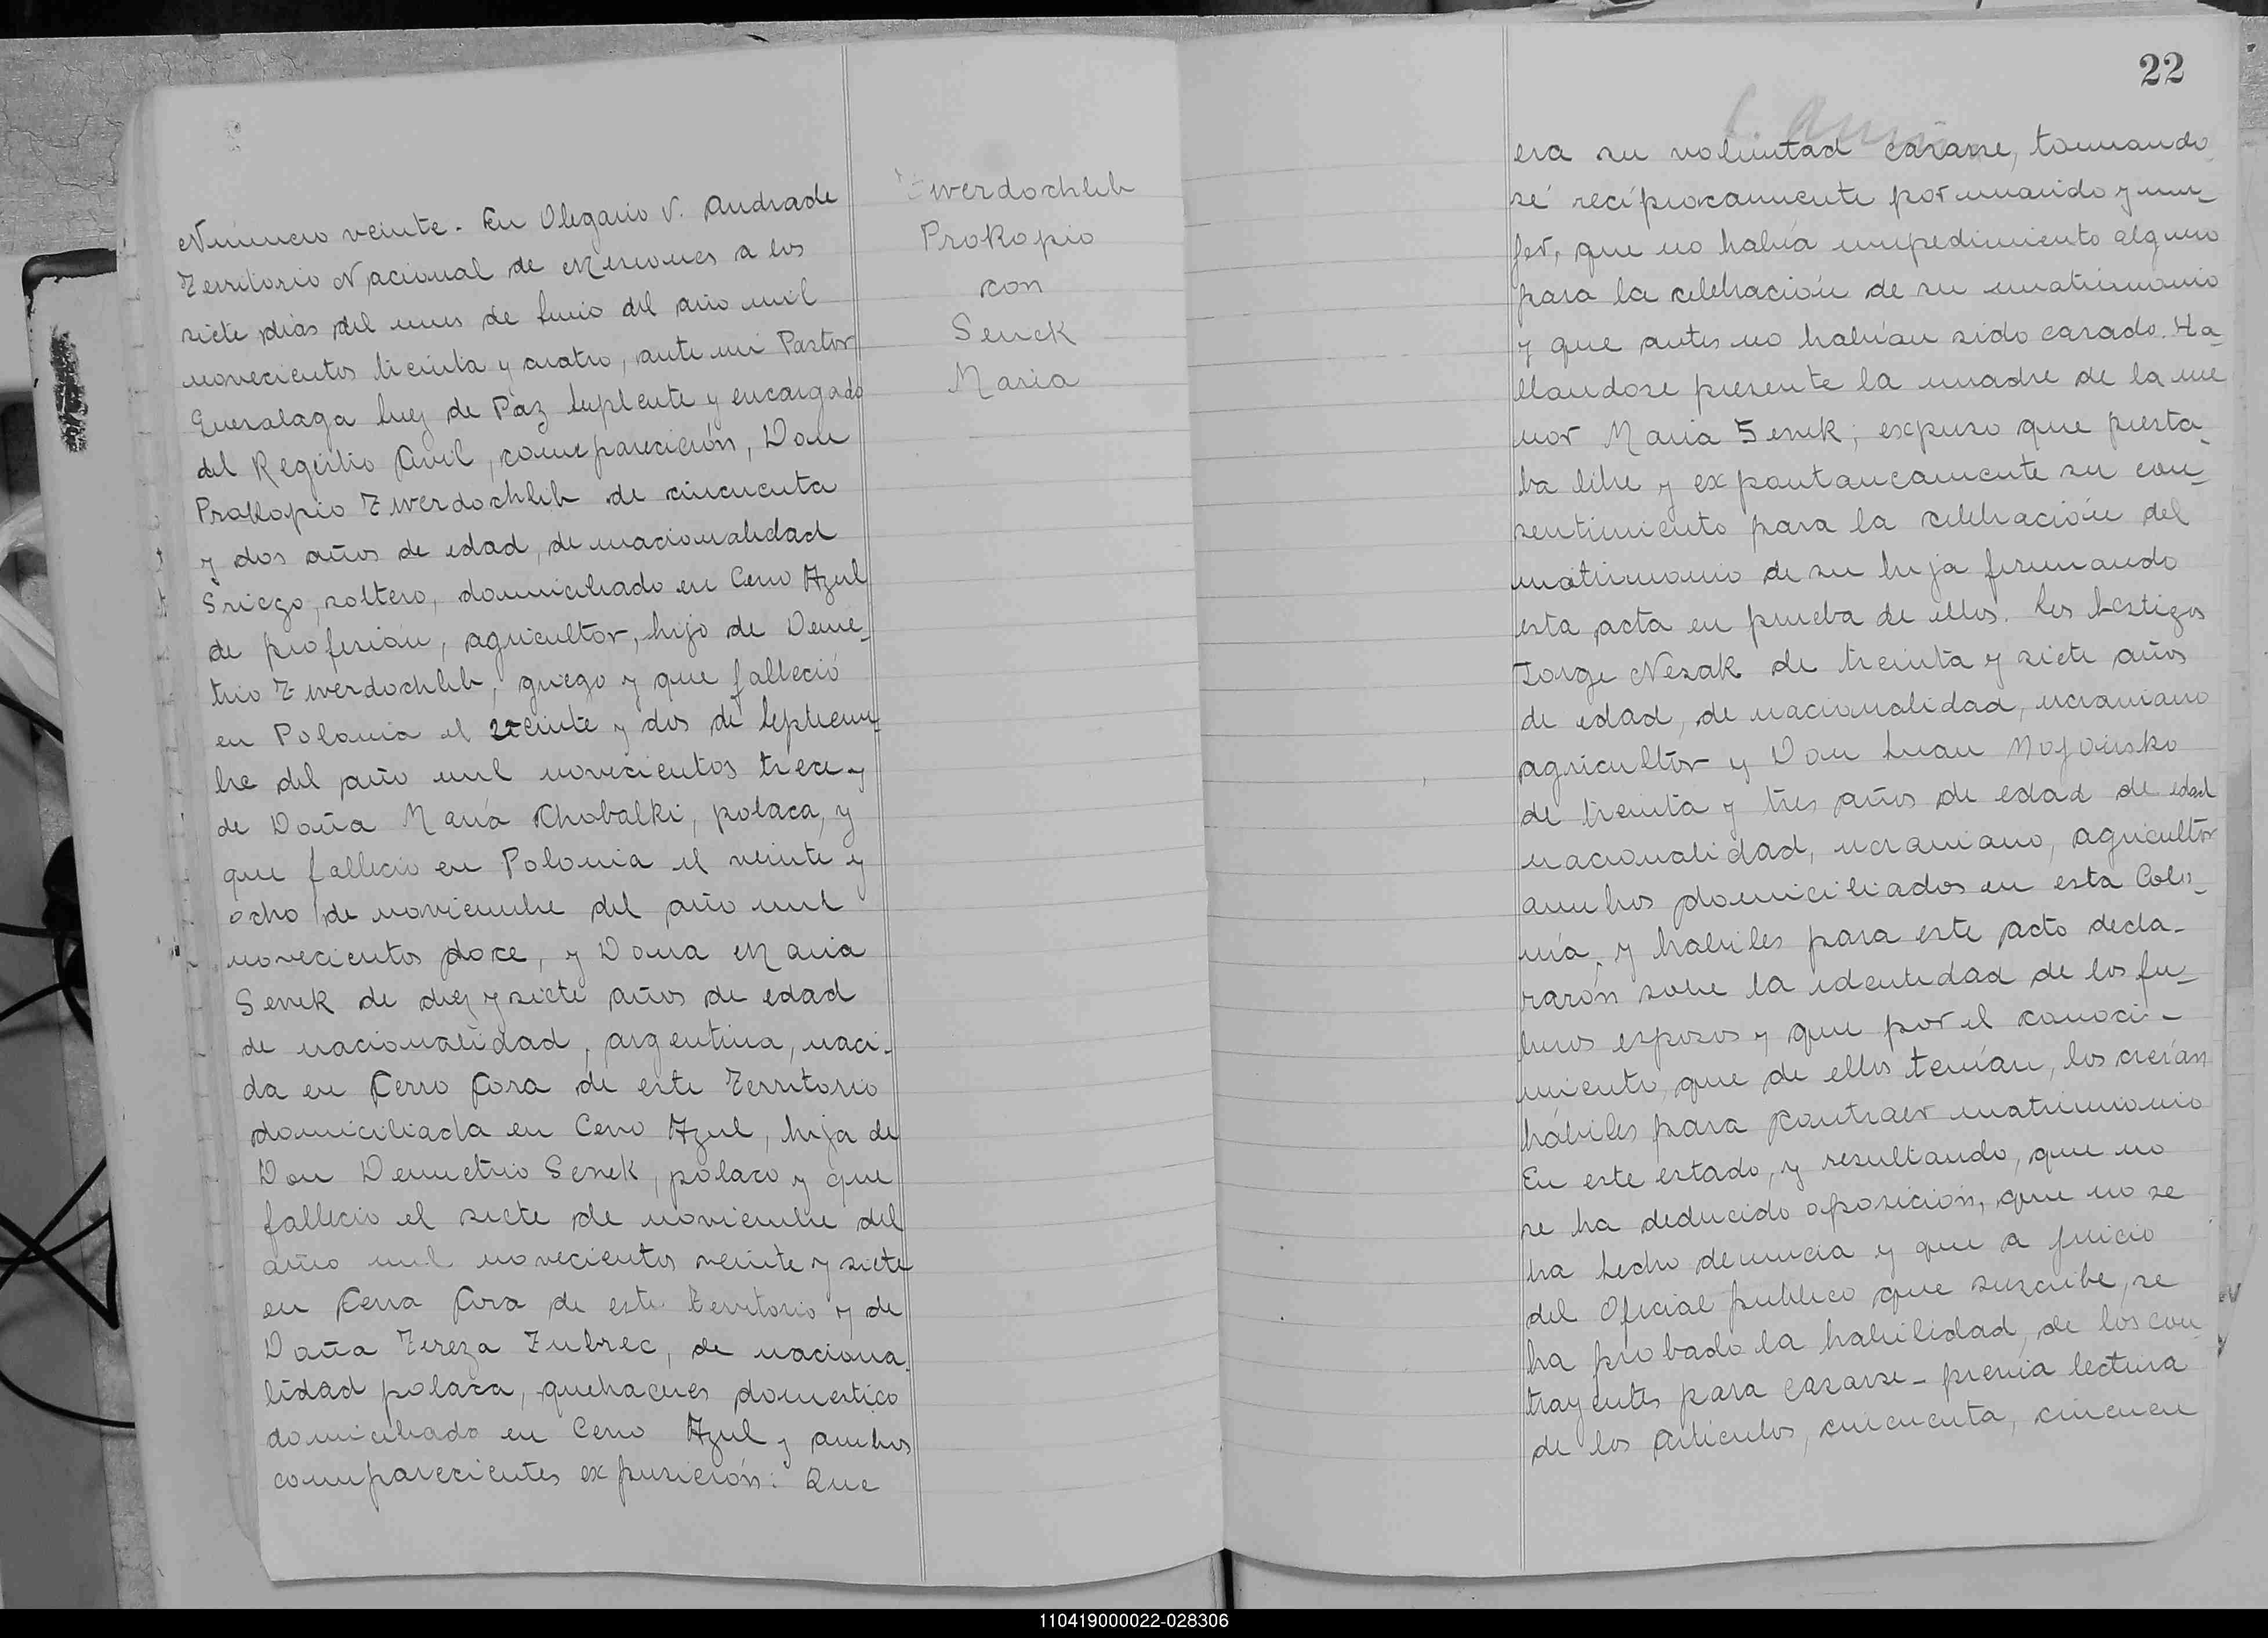 Número veinte. En Olegario V. Andrade
Territorio Nacional de Misiones a los
siete dias del mes de Junio del año mil
novecientos treinta y cuatro, ante mi Pastor
Juez de Paz Suplente y encargado
del Registio Civil, comparecición, Don
Prokopio Zwerdochlib de cincuenta
y dos años de edad, de nacionalidad
Griego, soltero, domicilrado en Cerro Azul
de profesión, agricultor, hijo de Deme-
trio Zwerdochlib, griego y que falleció
en Polonia el veinte y dos de septiem-
bre del año mil novecientos trece y
de Doña María Chobalki, polaca, y
que fallecio en Polonia el veinte y
ocho de noviembre del año mil
novecientos doce, y Dona Maria
Senek de diez y siete años de edad
de nacionalidad, argentina, naci-
da en Cerro Cora de este Territorio
domiciliada en Cerro Azul, hija de
Don Demetrio Senek, polaco y que
fallecio el siete de noviembre del
año mil novecientos veinte y siete
en Cerra Cora de este territorio y de
Doña Tereza Zubrec, de naciona-
lidad polaca, quehaceres domestico
domicilrado en Cerro Azul y ambos
comparecientes expusierón: Que
Zwerdochlib
Prokopio
con
Senek
Maria
22
era su voluntad casarse, tomando
sé recíprocamente por marido y mu-
jer, que no había impedimiento alguno
para la celebración de su matrimonio
y que antes no habían sido casado. Ha-
llandose presente la madre de la me
nor Maria Senek; expuso que presta-
ba libre y expontaneamente su con-
sentimiento para la celebración del
matrimonio de su hija firmando
esta acta en prueba de ellos. Los testigos
Jorge Nesak de treinta y siete años
de edad, de nacionalidad, ucraniano
agricultor y Don Juan
de treinta y tres años de edad de edad
nacionalidad, ucraniano, agricultor
ambos domiciliados en esta Colo-
nia, y habiles para este acto decla-
rarón sobre la identidad de los fu-
turos esposos y que por el conoci-
miento, que de ellos tenían, los creían
hábiles para contraer matrimonio
En este estado, y resultando, que no
se ha deducido oposicion, que no se
ha hecho denuncia y que a juicio
del Oficial publico que suscribe, se
ha probado la habilidad, de los con
trayentes para casarse - previa lectura
de los articulos, cincuenta, cincuen
110419000022-028306